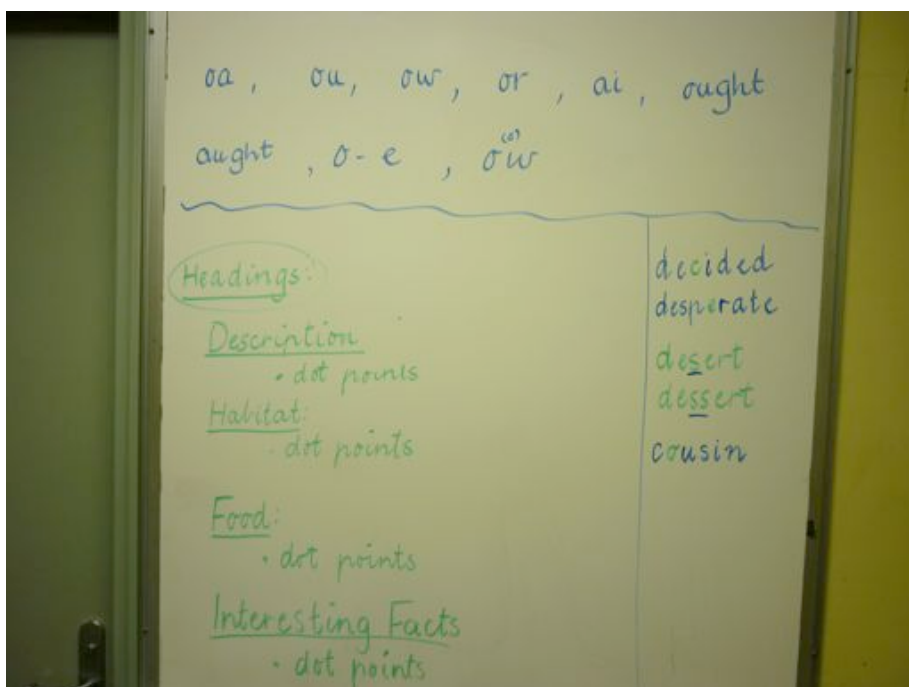 oa, ou, ow, or, ai, ought
aught, o-e, ow
(o)
Headings:
Description
• dot points
Habitat:
· dot points
Food:
• dot points
Interesting Facts
• dot points
decided
desperate
desert
dessert
cousin